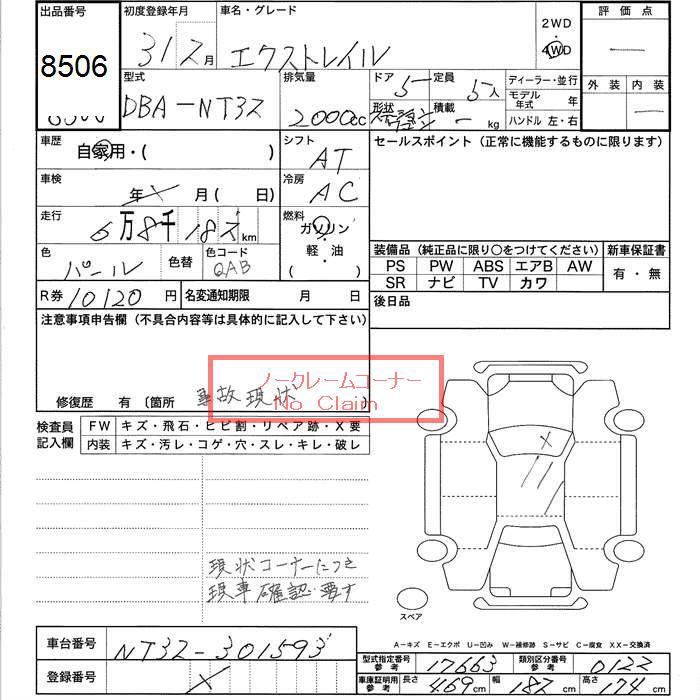 出品番号 初度登録年月 車名・グレード 2WD 評価点
8506 31 2月 エクストレイル 4WD
型式 排気量 ドア 5 定員 5人 ディーラー・並行 外装 内装
DBA-NT32 2000cc 形状 積載 - kg モデル年式 年
ハンドル 左・右
車歴 自家用・( ) シフト AT セールスポイント(正常に機能するものに限ります)
車検 年 月(日) 冷房 AC
走行 6万8千182km 燃料 ガソリン
色 パール 色替 色コード QAB 軽・油 ( )
装備品(純正品に限り○をつけてください) 新車保証書
PS PW ABS エアB AW 有・無
SR ナビ TV カワ
R券 10120円 名変通知期限 月 日 後日品
注意事項申告欄(不具合内容等は具体的に記入して下さい)
ノークレームコーナー
No Claim
修復歴 有 〔箇所 事故現状
検査員記入欄 FW キズ・飛石・ヒビ割・リペア跡・X要
内装 キズ・汚レ・コゲ・穴・スレ・キレ・破レ
X
現状コーナーにつき
現車確認要す
スペア
A-キズ E-エクボ U-凹み W-補修跡 S-サビ C-腐食 XX-交換済
車台番号 NT32-301593
登録番号 X
型式指定番号参考 17663 類別区分番号参考 0122
車庫証明用参考 長さ 469cm 幅 187cm 高さ 174cm